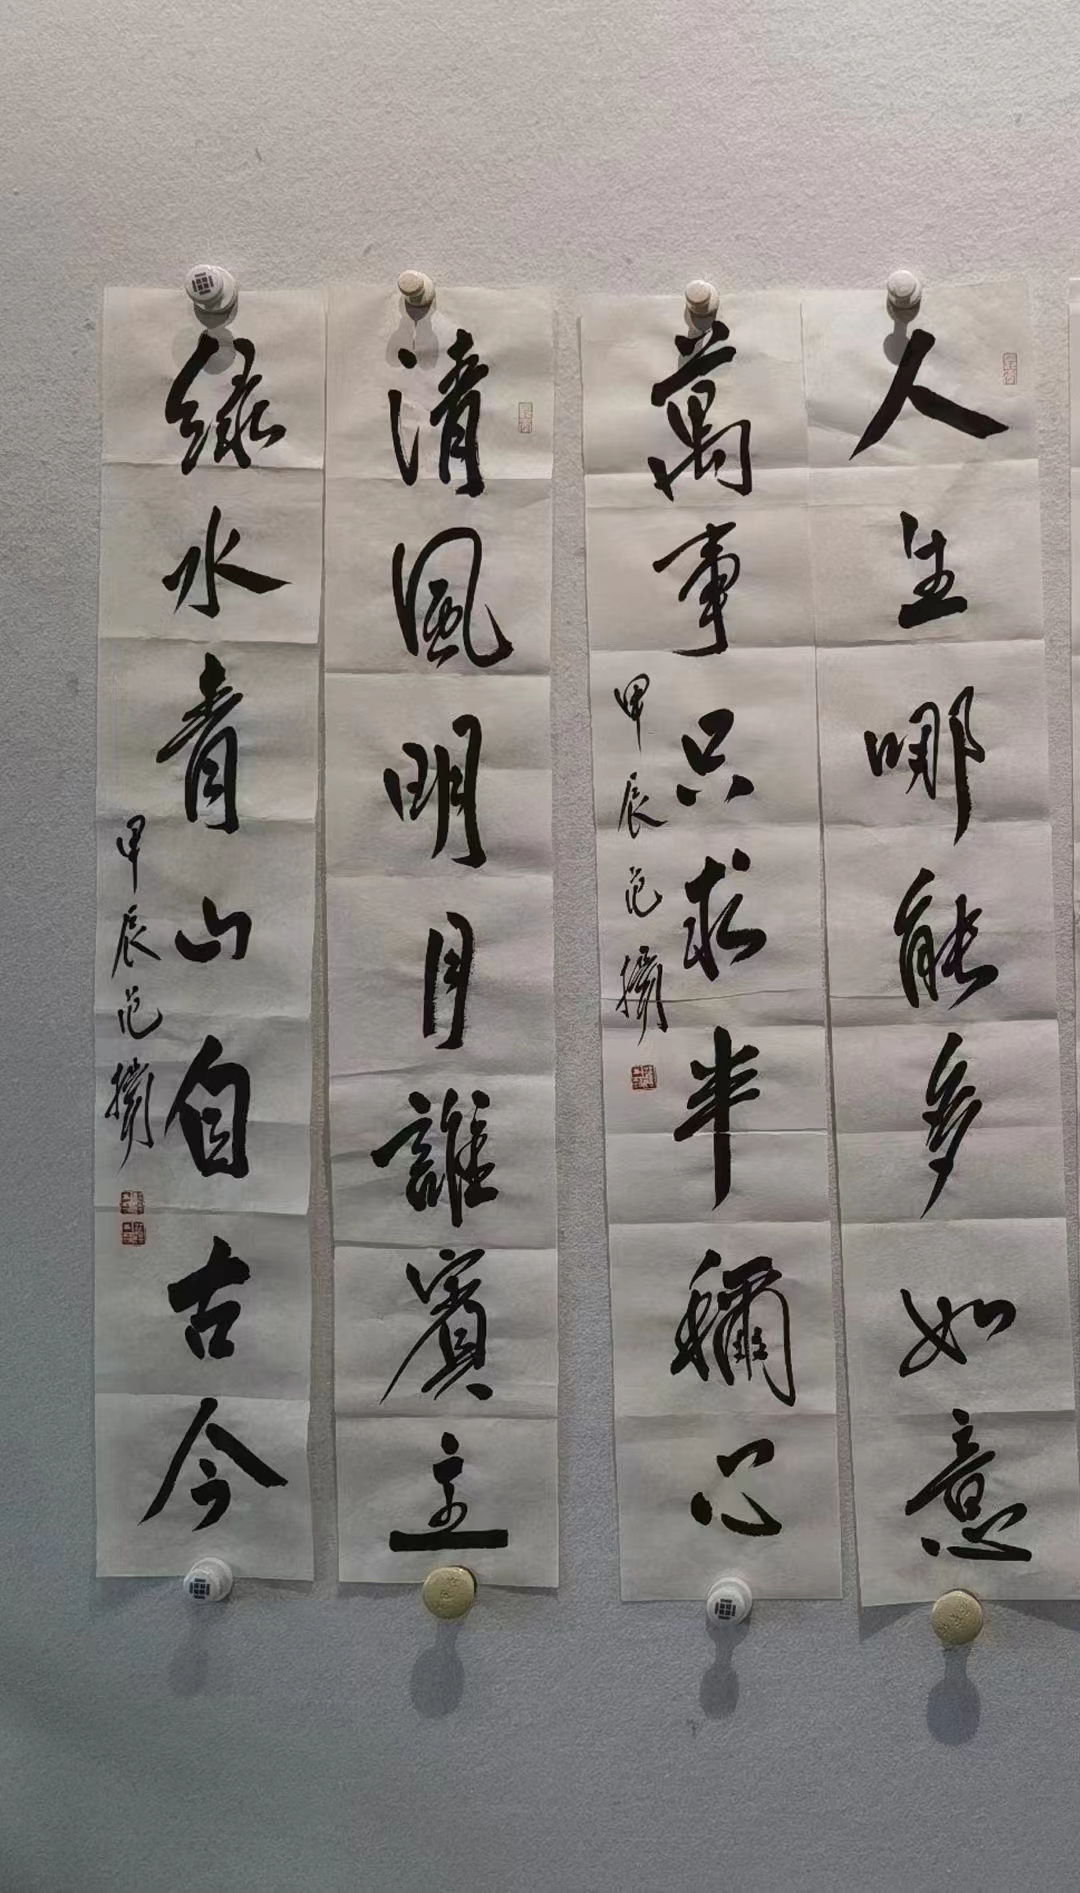 人生哪能多如意
萬事只求半穪心
甲辰范
清風明月誰賓主
绿水青山自古今
甲辰范